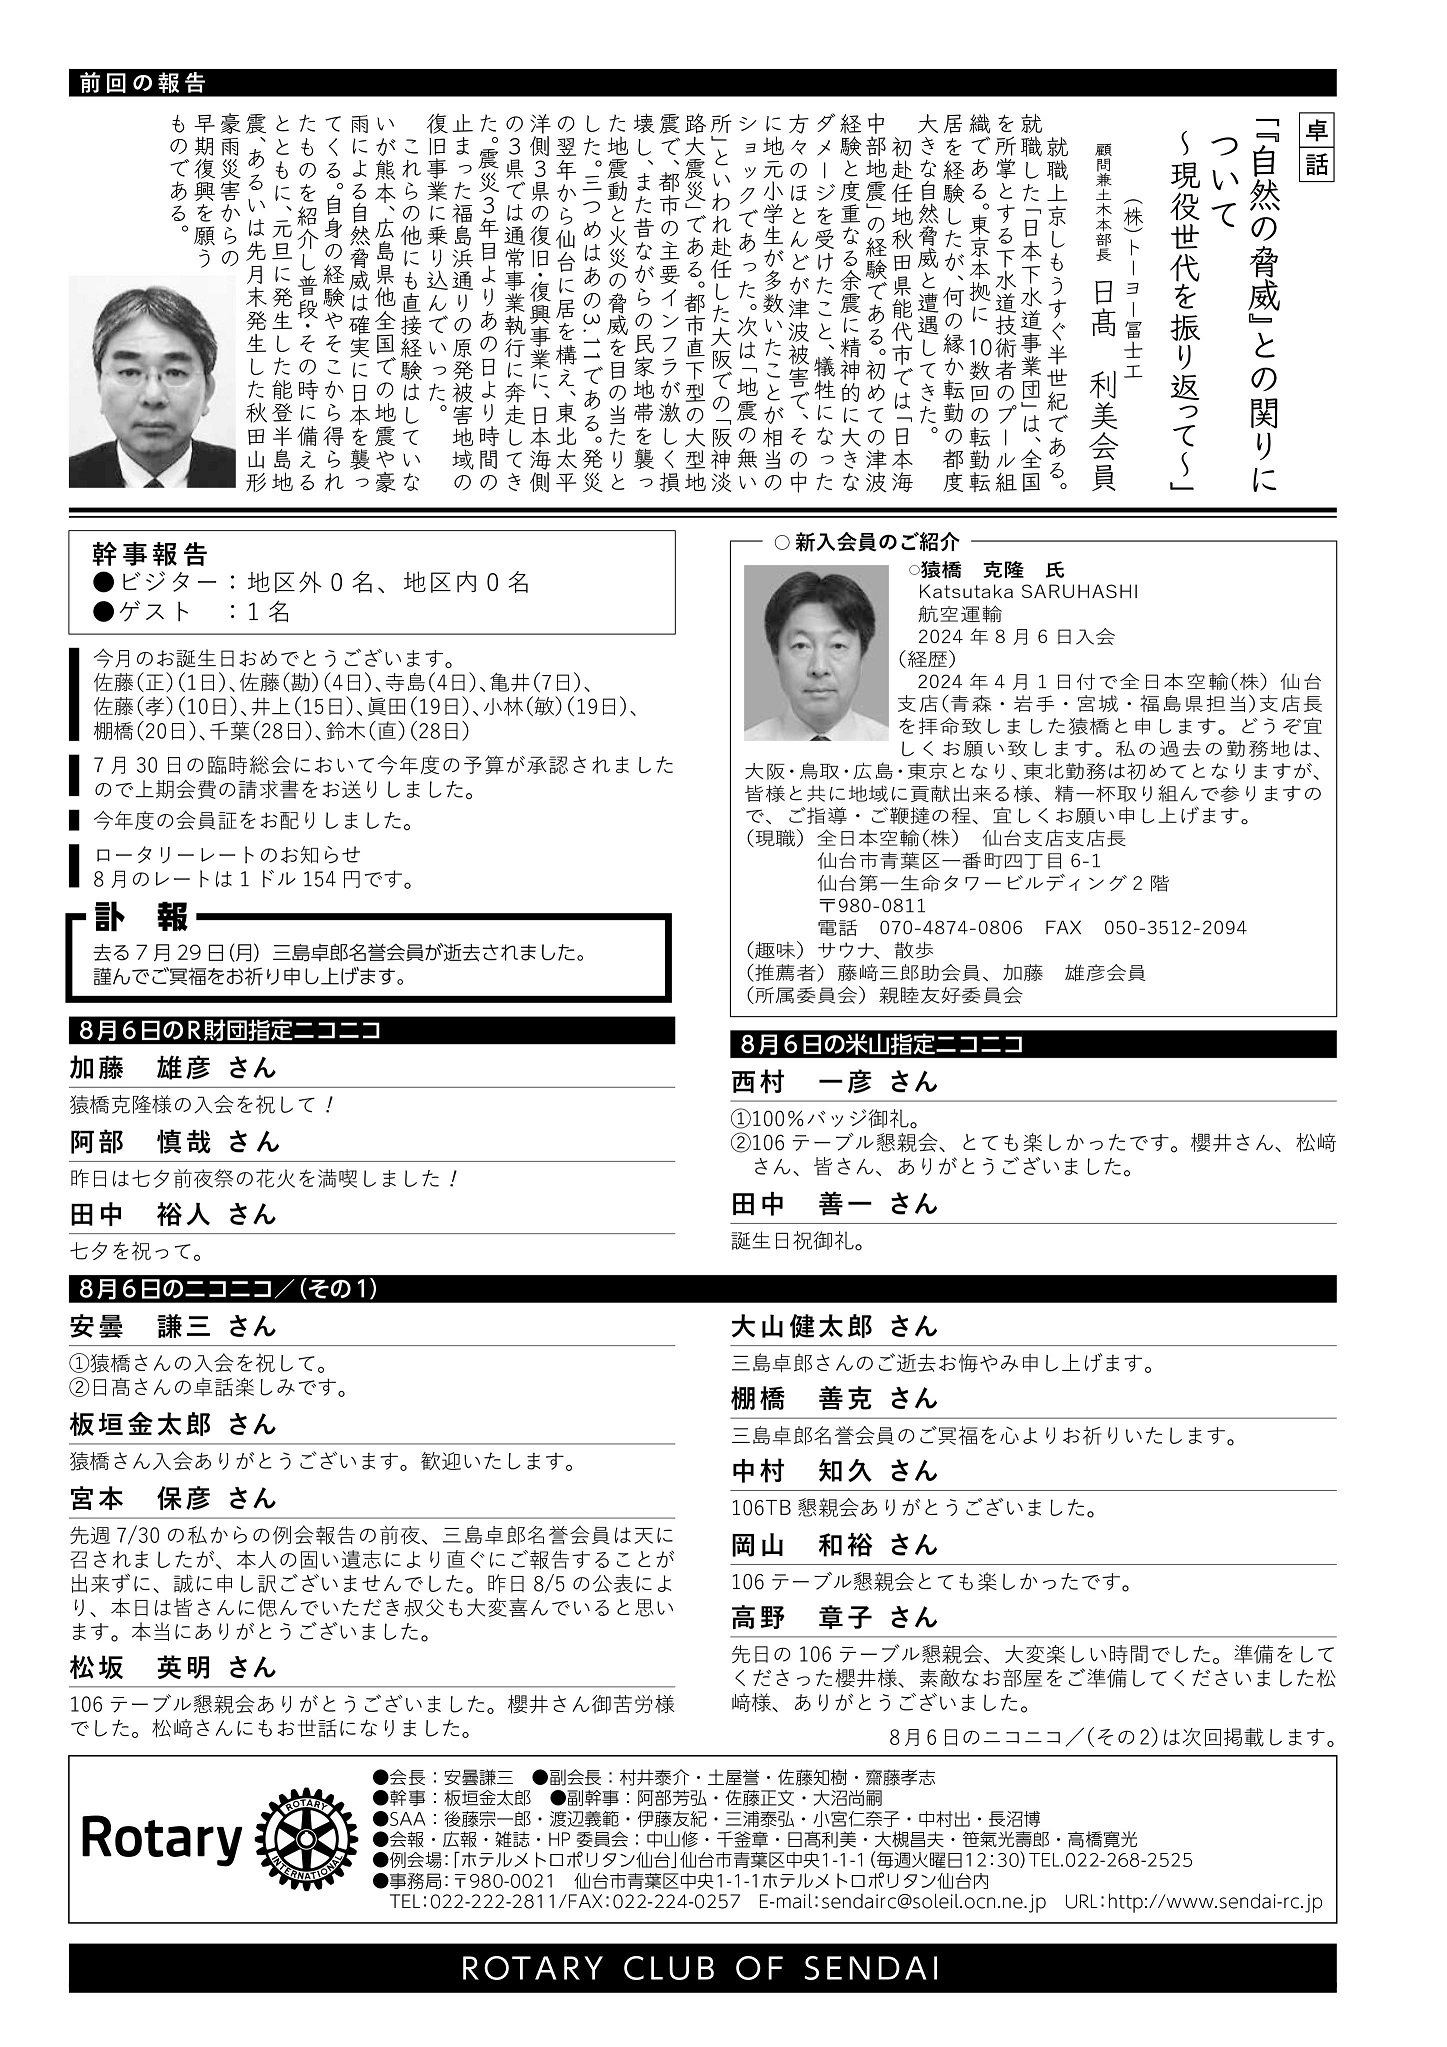 前回の報告
卓話
「『自然の脅威』との関りに
ついて
～現役世代を振り返って～」
（株）トーヨー冨士工
顧問兼土木本部長　日髙　利美会員
就職上京しもうすぐ半世紀である。
就職した「日本下水道事業団」は、全国
を所掌とする下水道技術者のプール組
織である。東京本拠に10数回の転勤転
居を経験したが、何の縁か転勤の都度
大きな自然脅威と遭遇してきた。
初赴任地秋田県能代市では「日本海
中部地震」の経験である。初めての津波
経験と度重なる余震に精神的に大きな
ダメージを受けたこと、犠牲になった
方々のほとんどが津波被害で、その中
に地元小学生が多数いたことが相当の
ショックであった。次は「地震の無い
所」といわれ赴任した大阪での「阪神淡
路大震災」である。都市直下型の大型地
震で、都市の主要インフラが激しく損
壊し、また昔ながらの民家地帯を襲っ
た地震動と火災の脅威を目の当たりと
した。三つめはあの3.11である。発災
の翌年から仙台に居を構え、東北太平
洋側３県の復旧・復興事業に、日本海側
の３県では通常事業執行に奔走してき
た。震災３年目よりあの日より時間の
止まった福島浜通りの原発被害地域の
復旧事業に乗り込んでいった。
これらの他にも直接経験はしていな
いが熊本、広島県他全国での地震や豪
雨による自然脅威は確実に日本を襲っ
てくる。自身の経験やそこから得られ
たものを紹介し普段・その時に備える
とともに、元旦に発生した能登半島地
震、あるいは先月末発生した秋田山形
豪雨災害からの
早期復興を願う
ものである。
幹事報告
●ビジター：地区外０名、地区内０名
●ゲスト　：1 名
今月のお誕生日おめでとうございます。
佐藤（正）（1日）、佐藤（勘）（4日）、寺島（4日）、亀井（7日）、
佐藤（孝）（10日）、井上（15日）、眞田（19日）、小林（敏）（19日）、
棚橋（20日）、千葉（28日）、鈴木（直）（28日）
7 月 30 日の臨時総会において今年度の予算が承認されました
ので上期会費の請求書をお送りしました。
今年度の会員証をお配りしました。
ロータリーレートのお知らせ
8 月のレートは 1 ドル 154 円です。
訃　報
去る 7 月 29 日（月）三島卓郎名誉会員が逝去されました。
謹んでご冥福をお祈り申し上げます。
8月6日のR財団指定ニコニコ
加藤　雄彦 さん
猿橋克隆様の入会を祝して！
阿部　慎哉 さん
昨日は七夕前夜祭の花火を満喫しました！
田中　裕人 さん
七夕を祝って。
○新入会員のご紹介
○猿橋　克隆　氏
Katsutaka SARUHASHI
航空運輸
2024 年 8 月 6 日入会
（経歴）
2024 年 4 月 1 日付で全日本空輸(株) 仙台
支店（青森・岩手・宮城・福島県担当）支店長
を拝命致しました猿橋と申します。どうぞ宜
しくお願い致します。私の過去の勤務地は、
大阪・鳥取・広島・東京となり、東北勤務は初めてとなりますが、
皆様と共に地域に貢献出来る様、精一杯取り組んで参りますの
で、ご指導・ご鞭撻の程、宜しくお願い申し上げます。
（現職）全日本空輸(株)　仙台支店支店長
仙台市青葉区一番町四丁目 6-1
仙台第一生命タワービルディング 2 階
〒980-0811
電話　070-4874-0806　FAX　050-3512-2094
（趣味）サウナ、散歩
（推薦者）藤﨑三郎助会員、加藤　雄彦会員
（所属委員会）親睦友好委員会
8月6日の米山指定ニコニコ
西村　一彦 さん
①100％バッジ御礼。
②106 テーブル懇親会、とても楽しかったです。櫻井さん、松﨑
さん、皆さん、ありがとうございました。
田中　善一 さん
誕生日祝御礼。
8月6日のニコニコ／（その1）
安曇　謙三 さん
①猿橋さんの入会を祝して。
②日髙さんの卓話楽しみです。
板垣金太郎 さん
猿橋さん入会ありがとうございます。歓迎いたします。
宮本　保彦 さん
先週 7/30 の私からの例会報告の前夜、三島卓郎名誉会員は天に
召されましたが、本人の固い遺志により直ぐにご報告することが
出来ずに、誠に申し訳ございませんでした。昨日 8/5 の公表によ
り、本日は皆さんに偲んでいただき叔父も大変喜んでいると思い
ます。本当にありがとうございました。
松坂　英明 さん
106 テーブル懇親会ありがとうございました。櫻井さん御苦労様
でした。松﨑さんにもお世話になりました。
大山健太郎 さん
三島卓郎さんのご逝去お悔やみ申し上げます。
棚橋　善克 さん
三島卓郎名誉会員のご冥福を心よりお祈りいたします。
中村　知久 さん
106TB 懇親会ありがとうございました。
岡山　和裕 さん
106 テーブル懇親会とても楽しかったです。
高野　章子 さん
先日の 106 テーブル懇親会、大変楽しい時間でした。準備をして
くださった櫻井様、素敵なお部屋をご準備してくださいました松
﨑様、ありがとうございました。
8月6日のニコニコ／（その2）は次回掲載します。
Rotary
ROTARY
INTERNATIONAL
●会長：安曇謙三　●副会長：村井泰介・土屋誉・佐藤知樹・齋藤孝志
●幹事：板垣金太郎　●副幹事：阿部芳弘・佐藤正文・大沼尚嗣
●SAA：後藤宗一郎・渡辺義範・伊藤友紀・三浦泰弘・小宮仁奈子・中村出・長沼博
●会報・広報・雑誌・HP 委員会：中山修・千釜章・日髙利美・大槻昌夫・笹氣光壽郎・高橋寛光
●例会場：「ホテルメトロポリタン仙台」仙台市青葉区中央1-1-1（毎週火曜日12：30）TEL.022-268-2525
●事務局：〒980-0021　仙台市青葉区中央1-1-1ホテルメトロポリタン仙台内
TEL：022-222-2811/FAX：022-224-0257　E-mail：sendairc@soleil.ocn.ne.jp　URL：http://www.sendai-rc.jp
ROTARY CLUB OF SENDAI